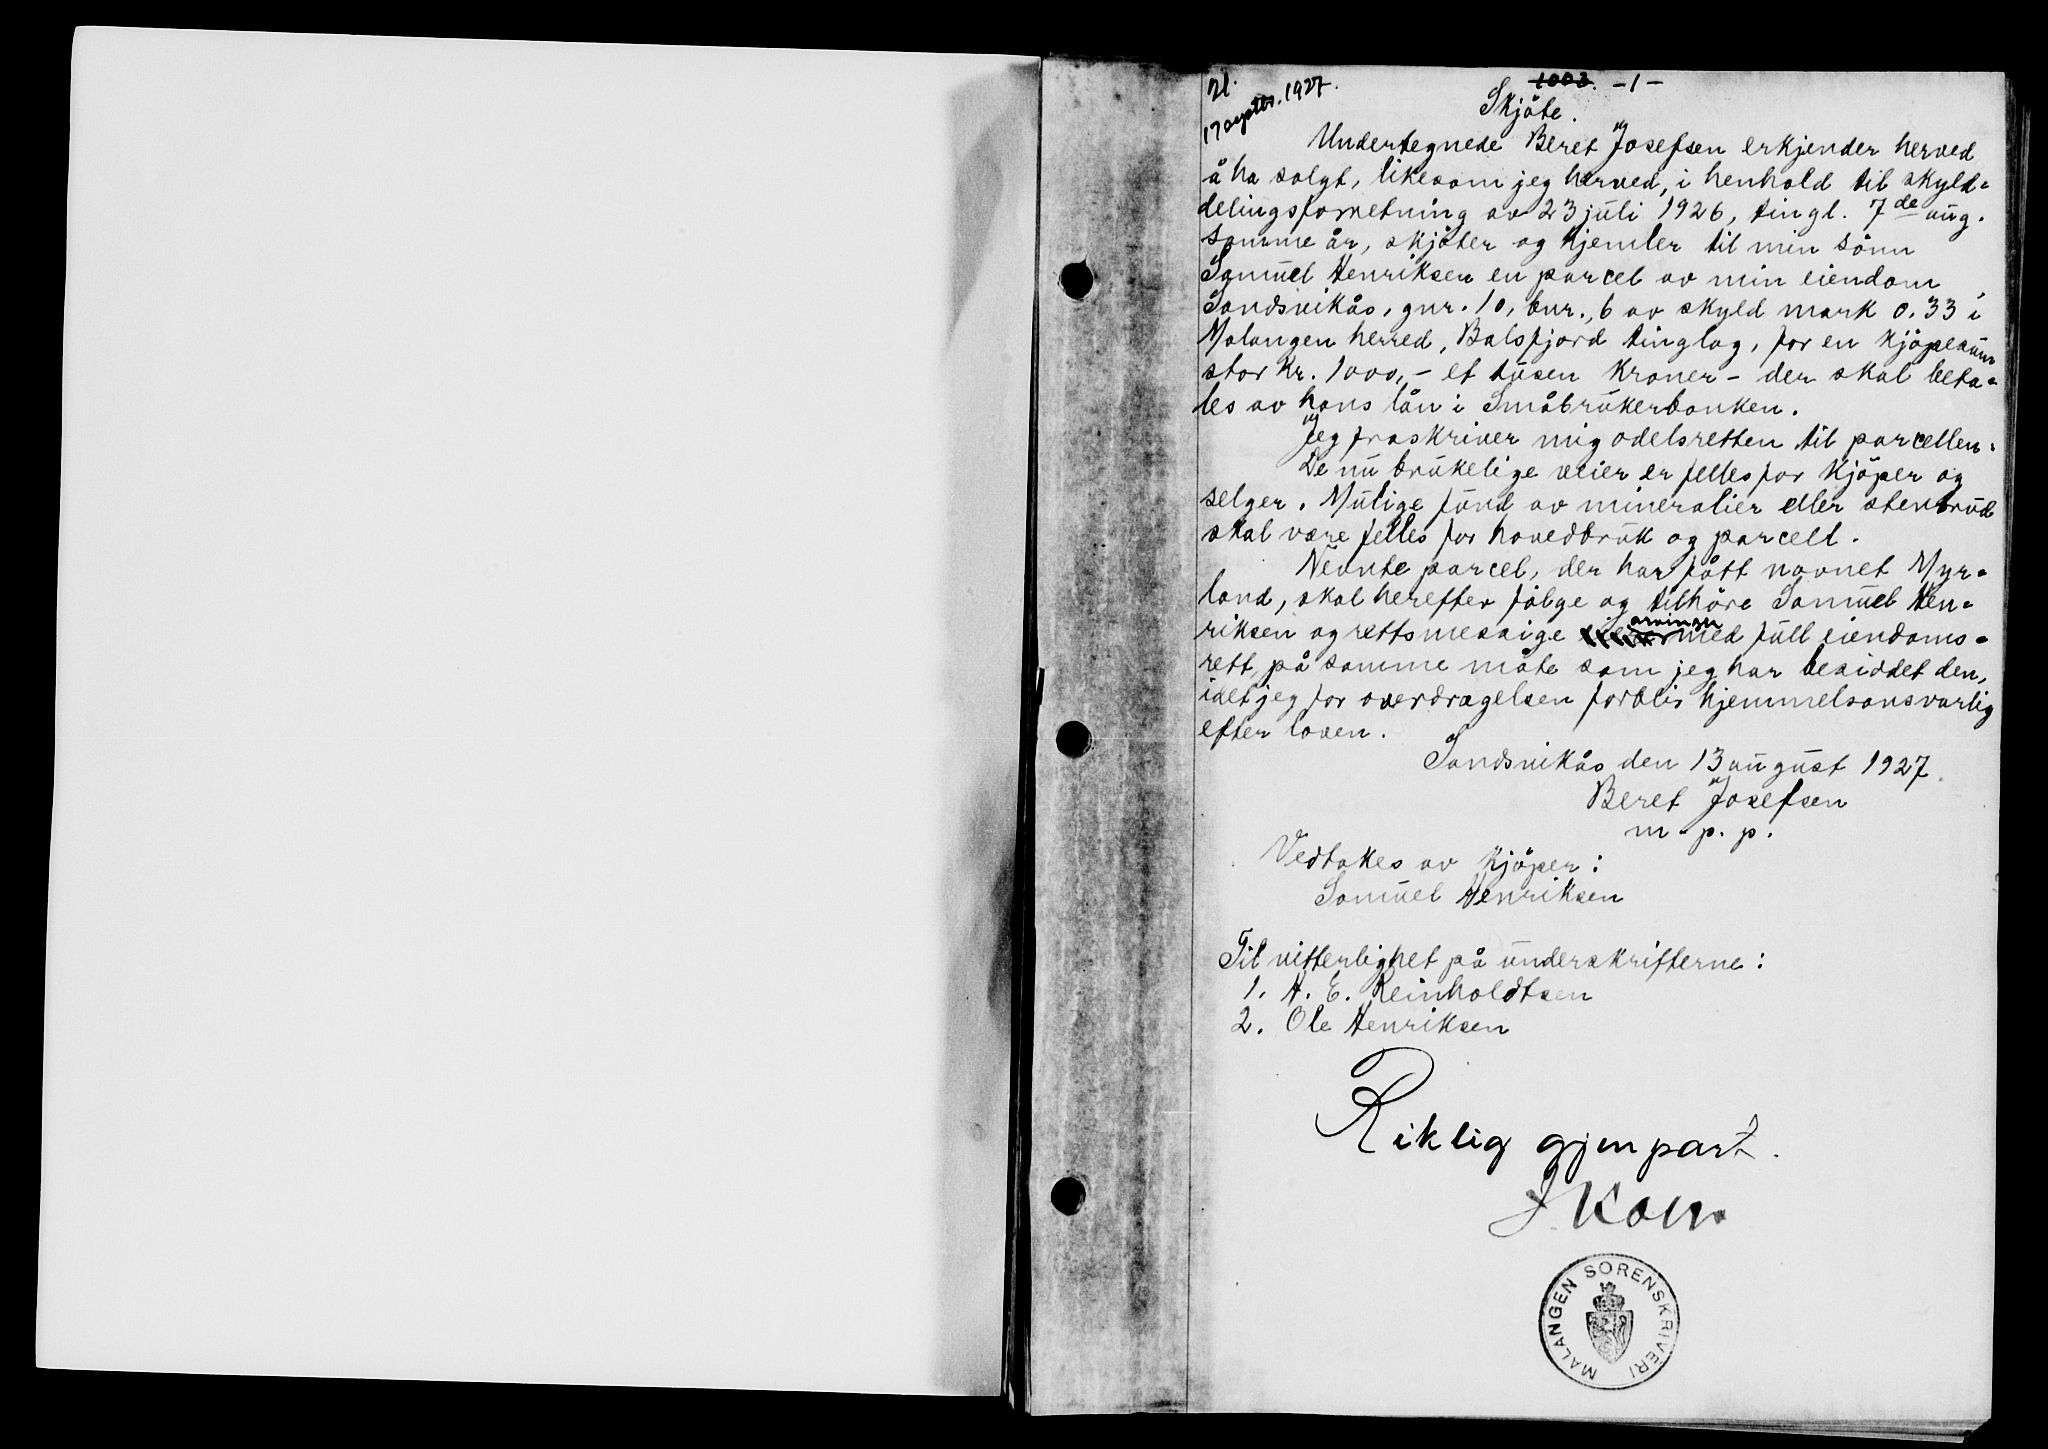 21.
17 septbr. 1927.
1003. -1-
Skjöte.
Undertegnede Beret Josefsen erkjender herved
å ha solgt, likesom jeg herved, i henhold til skyld=
delingsforretning av 23 juli 1926, tingl. 7de aug.
samme år, skjöter og hjemler til min sönn
Samuel Henriksen en parcel av min eiendom
Sandsvikås, gnr. 10, bnr. 6 av skyld mark 0.33 i
Malangen herred, Balsfjord tinglag, for en kjöpesum
stor kr. 1000,- et tusen kroner - der skal beta=
les av hans lån i Småbrukerbanken.
Jeg fraskriver mig odelsretten til parcellen.
De nu brukelige veier er felles for kjöper og
selger. Mulige fund av mineralier eller stenbrud
skal være felles for hovedbruk og parcell.
Nevnte parcel, der har fått navnet Myr=
land, skal herefter fölge og tilhöre Samuel Hen=
riksen og rettsmessige arvinger med full eiendoms=
rett, på samme måte som jeg har besiddet den,
idet jeg for overdragelsen forblir hjemmelsansvarlig
efter loven.
Sandsvikås den 13 august 1927.
Beret Josefsen
m. p. p.
Vedtakes av kjöper:
Samuel Henriksen
Til vitterlighet på underskrifterne:
1. H. E. Reinholdtsen
2. Ole Henriksen
Riktig gjenpart.
MALANGEN SORENSKRIVERI